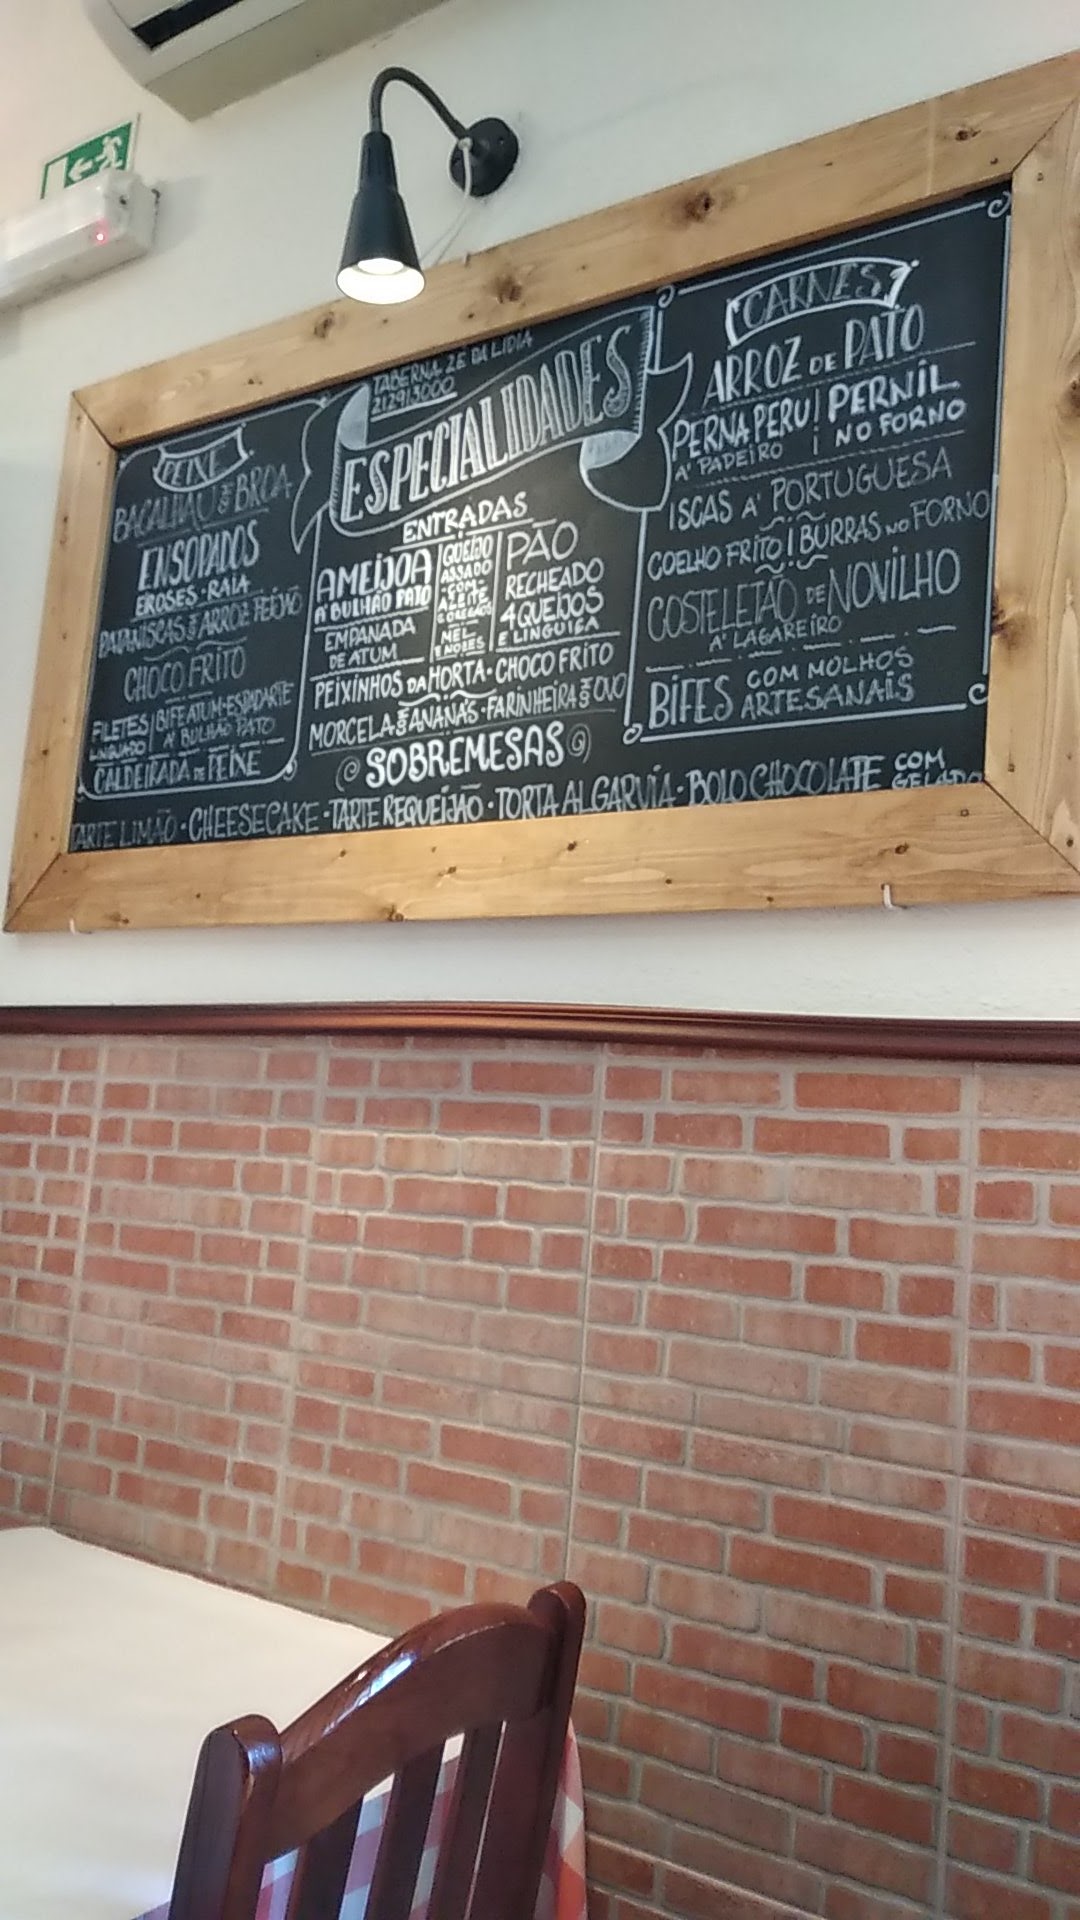 TABERNA ZÉ DA LIDIA
212913000
ESPECIALIDADES
PEIXE
BACALHAU COM BROA
ENSOPADOS
EROSES · RAIA
PATANISCAS COM ARROZ FEIJÃO
CHOCO FRITO
FILETES
LINGUADO
BIFE ATUM · ESPADARTE
A' BULHÃO PATO
CALDEIRADA DE PEIXE
ENTRADAS
AMEIJOA
A' BULHÃO PATO
EMPANADA
DE ATUM
QUEIJO
ASSADO
COM
AZEITE
OREGÃOS
MEL
E NOZES
PÃO
RECHEADO
4 QUEIJOS
E LINGUIÇA
PEIXINHOS DA HORTA · CHOCO FRITO
MORCELA COM ANANÁS · FARINHEIRA COM OVO
CARNES
ARROZ DE PATO
PERNA PERU
A' PADEIRO
PERNIL
NO FORNO
ISCAS A' PORTUGUESA
COELHO FRITO | BURRAS NO FORNO
COSTELETÃO DE NOVILHO
A' LAGAREIRO
BIFES COM MOLHOS
ARTESANAIS
SOBREMESAS
TARTE LIMÃO · CHEESECAKE · TARTE REQUEIJÃO · TORTA ALGARVIA · BOLO CHOCOLATE COM
GELADO